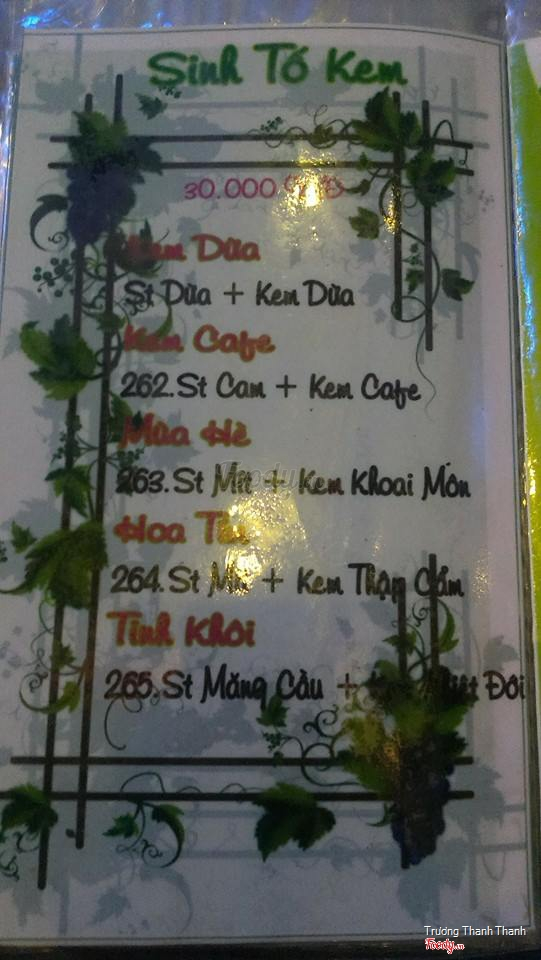 Sinh Tố Kem
30.000
Kem Dừa
St Dừa + Kem Dừa
Kem Cafe
262.St Cam + Kem Cafe
Mùa Hè
263.St Mít + Kem Khoai Môn
Hoa
264.St + Kem Thập Cẩm
Tinh Khôi
265.St Mãng Cầu + Đôi
Trương Thanh Thanh
Foody.vn